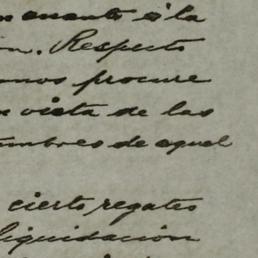 en cuanto á la
on. Respecto
mos procure
n vista de las
umbres de aquel
cierto regates
liquidación